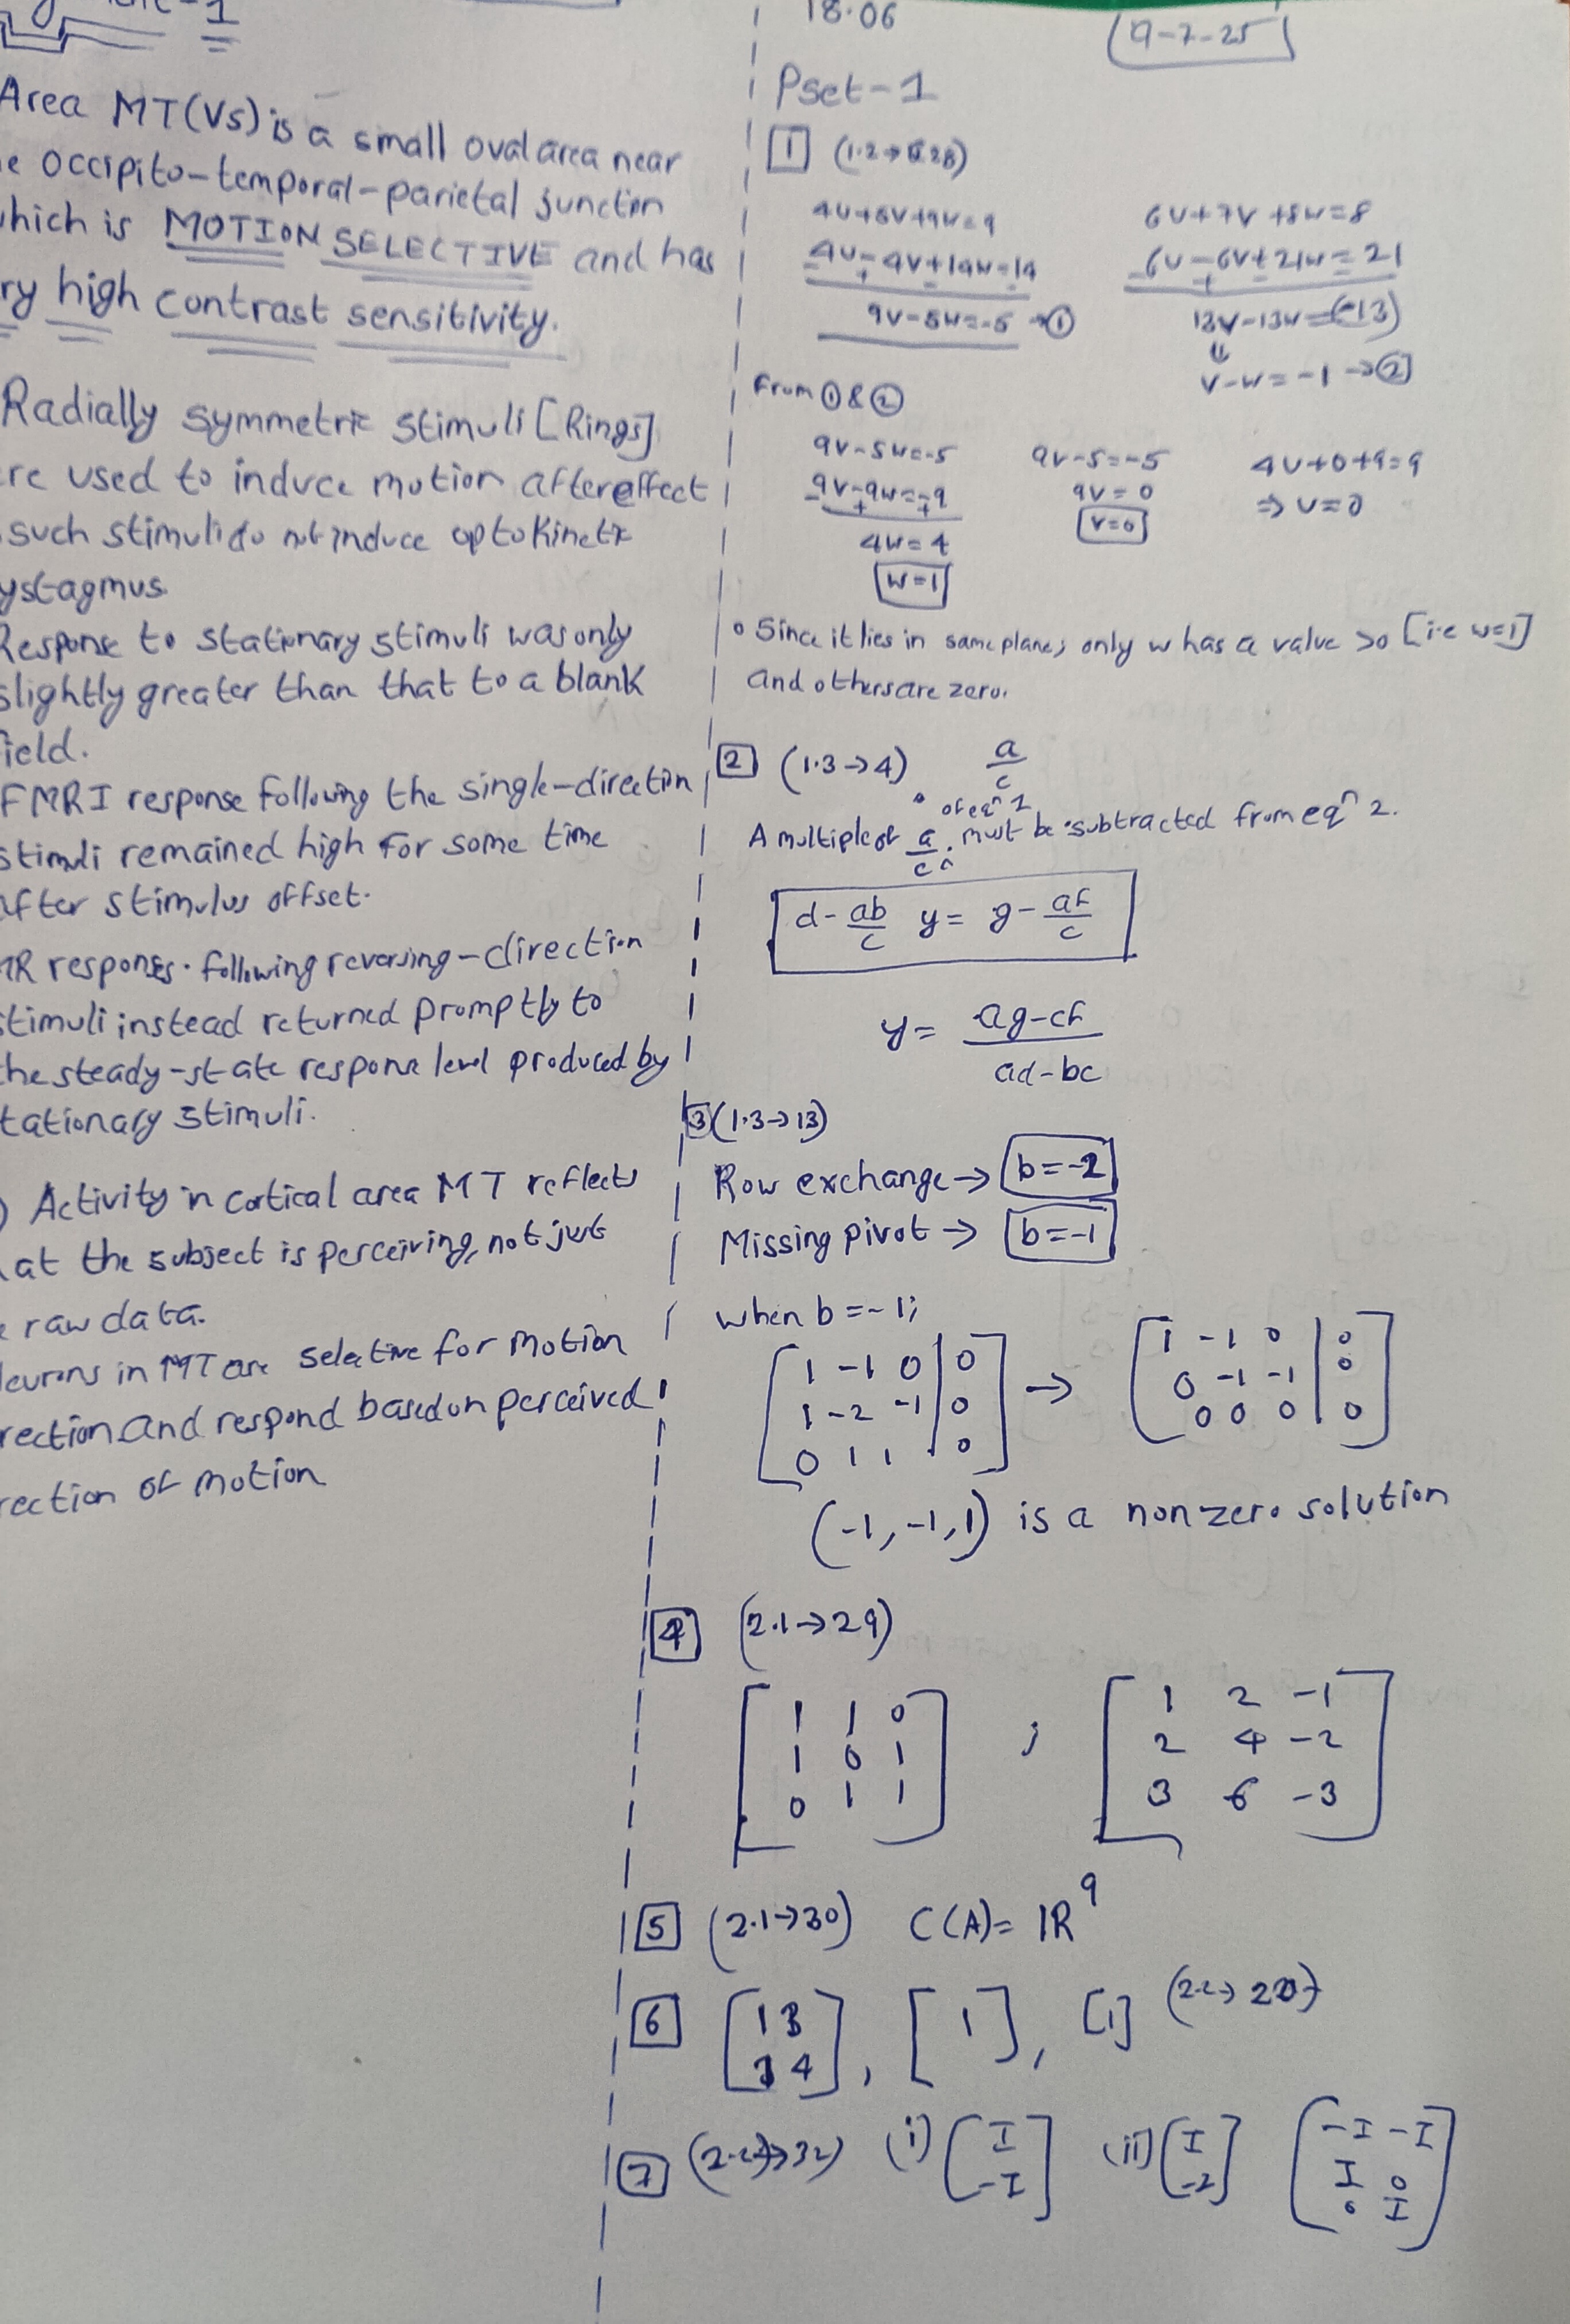 1
Area MT(V5) is a small oval area near
occipito-temporal-parietal junction
which is MOTION SELECTIVE and has
ry high contrast sensitivity.
Radially symmetric stimuli [Rings]
re used to induce motion aftereffect
such stimuli do not induce optokinetic
ystagmus.
Response to stationary stimuli was only
slightly greater than that to a blank
field.
FMRI response following the single-direction
stimuli remained high for some time
after stimulus offset.
MR responses following reversing-direction
stimuli instead returned promptly to
the steady-state response level produced by
tationary stimuli.
) Activity in cortical area MT reflects
at the subject is perceiving, not just
e raw data.
Neurons in MT are selective for motion
rection and respond based on perceived
rection of motion
18.06
9-7-25
Pset-1
1 (1.2→ 28)
4u+5v+9w=9
4u-4v+14w=14
9v-5w=-5 →①
6u+7v+8w=8
6u-6v+21w=21
13v-13w=(-13)
v-w=-1 →②
From ① & ②
9v-5w=-5
9v-9w=-9
4w=4
w=1
9v-5=-5
9v=0
v=0
4u+0+9=9
⇒ u=0
• Since it lies in same plane, only w has a value >0 [i.e w=1]
and others are zero.
2 (1.3→4) a/c
A multiple of a/c of eqⁿ 1 must be subtracted from eqⁿ 2.
d - ab/c y = g - af/c
y = ag-cf / ad-bc
3 (1.3→13)
Row exchange → b=-2
Missing pivot → b=-1
when b=-1;
[1 -1 0 | 0
1 -2 -1 | 0
0 1 1 | 0]
→
[1 -1 0 | 0
0 -1 -1 | 0
0 0 0 | 0]
(-1,-1,1) is a nonzero solution
4 (2.1→29)
[1 1 0
1 0 1
0 1 1]
;
[1 2 -1
2 4 -2
3 6 -3]
5 (2.1→30) C(A)= ℝ⁹
6 [1 3
3 4], [1], [1] (2.2→20)
7 (2.2→32) (i) [I
-I]
(ii) [I
-2]
[-I -I
I 0
0 I]